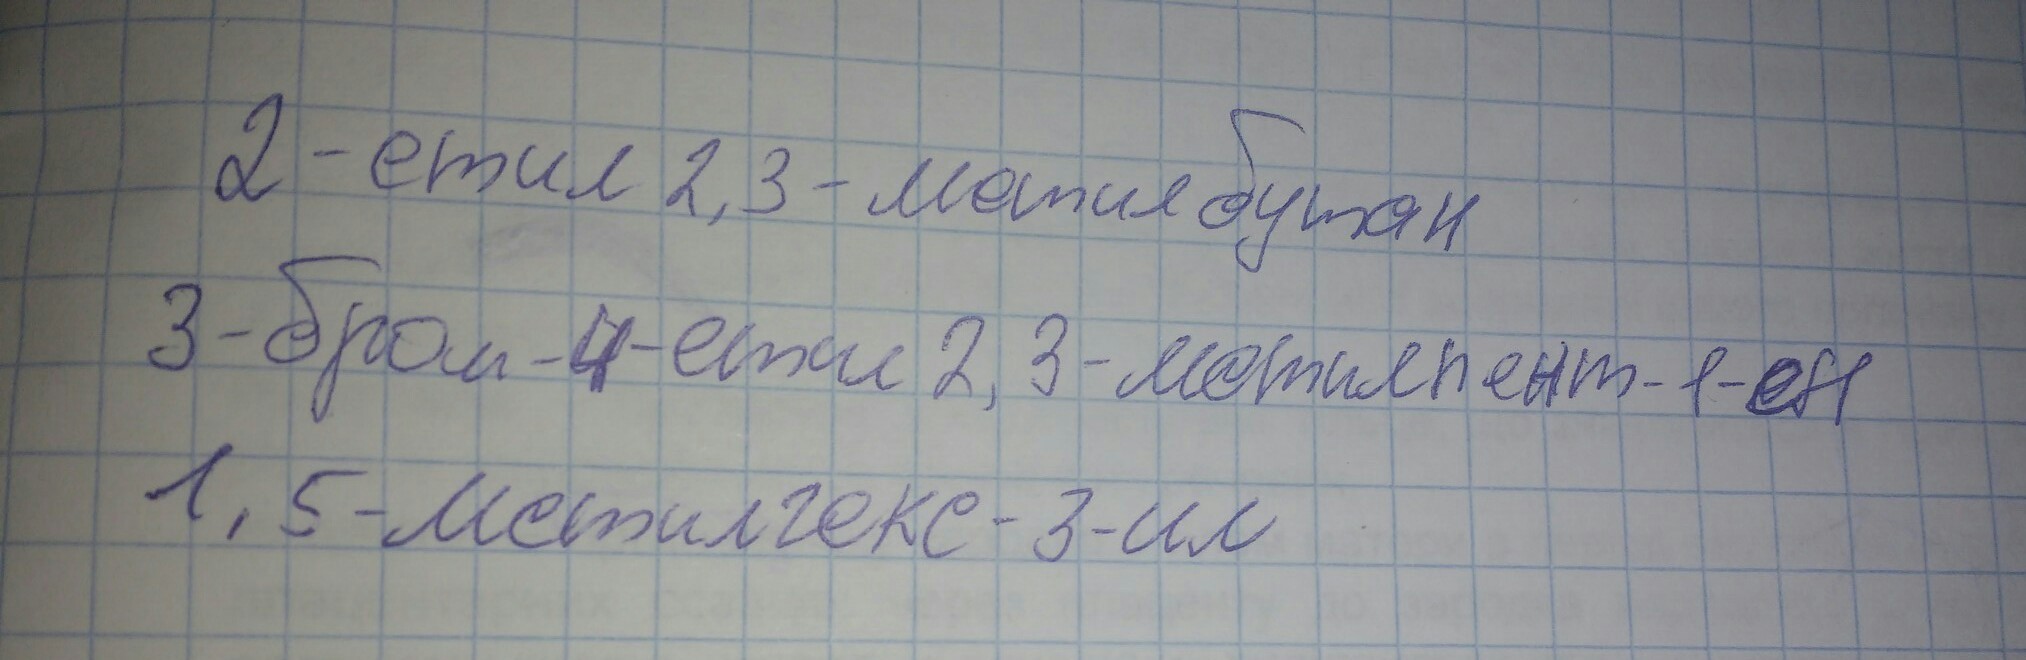 2-етил 2,3-метилбутан
3-бром-4-етил 2,3-метилпент-1-ен
1,5-метилгекс-3-ил